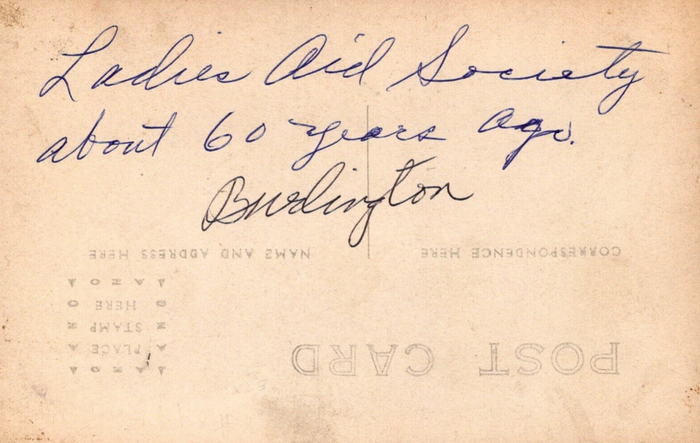 Ladies Aid Society
about 60 years ago.
Burlington
CORRESPONDENCE HERE
NAME AND ADDRESS HERE
POST CARD
PLACE
STAMP
HERE